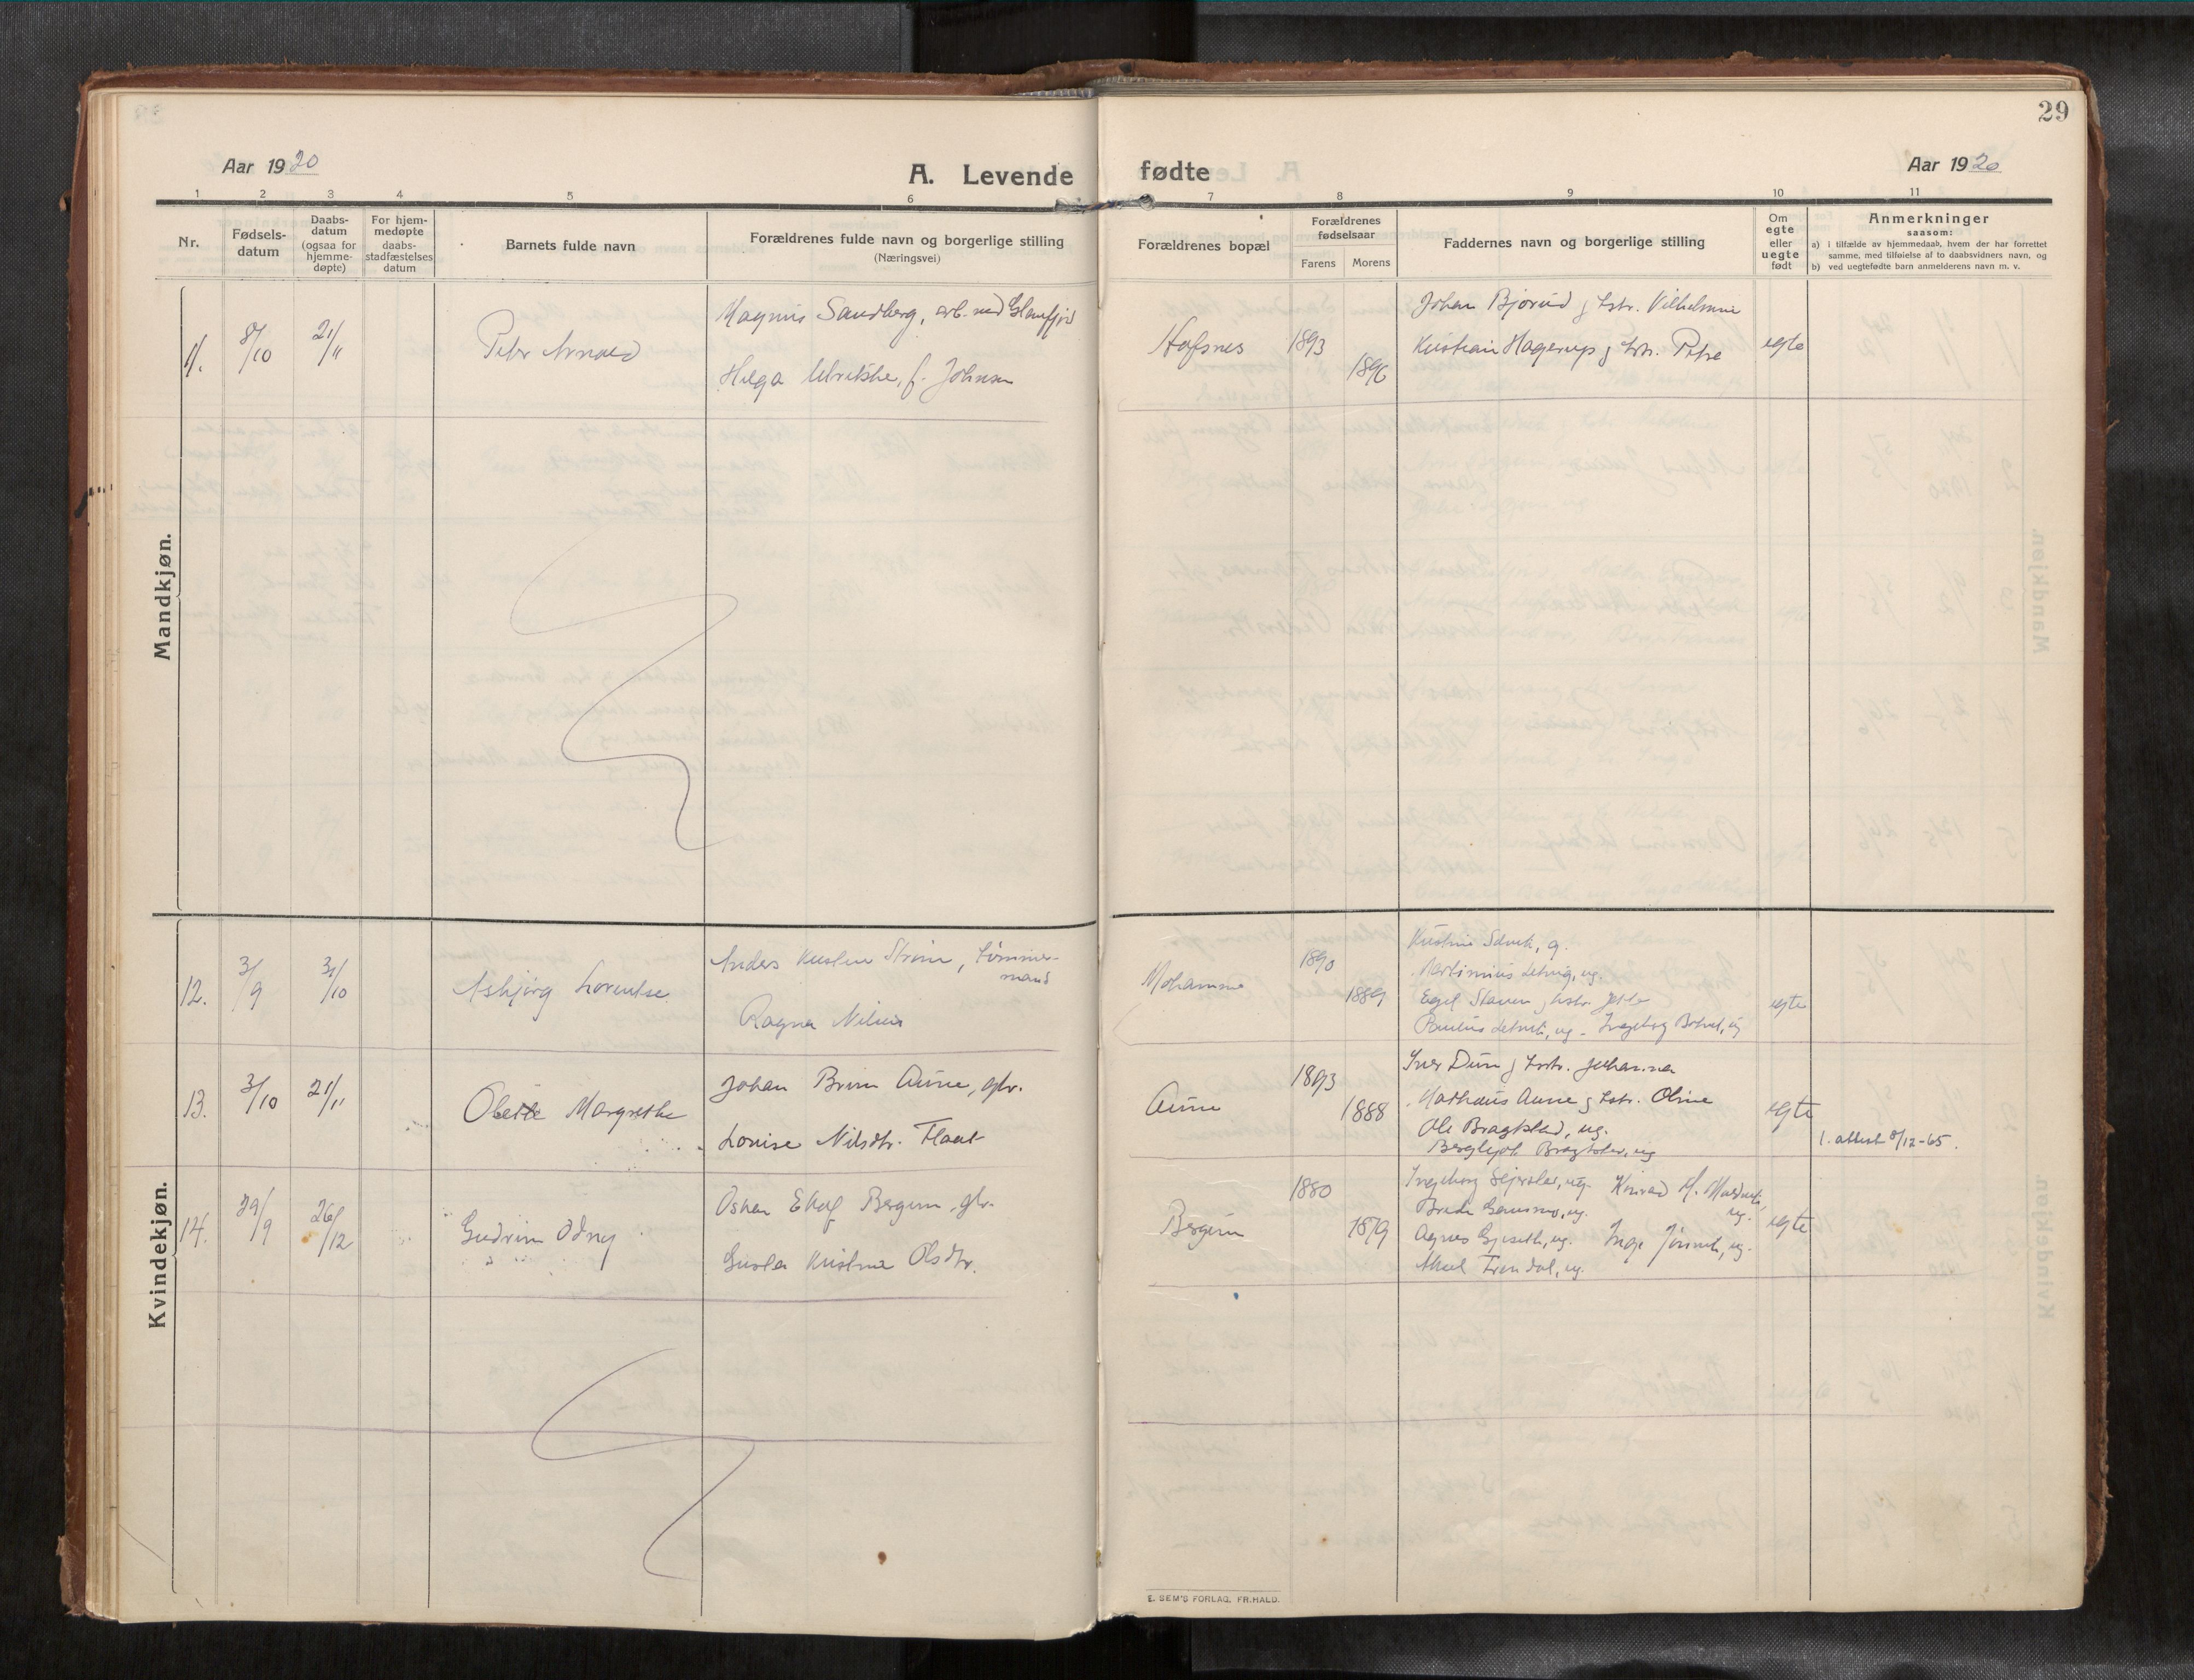 29
Aar 1920
A. Levende fødte
Aar 1920
1 2 3 4 5 6 7 8 9 10 11
Nr.
Fødsels-
datum
Daabs-
datum
(ogsaa for
hjemme-
døpte)
For hjem-
medøpte
daabs-
stadfæstelses
datum
Barnets fulde navn
Forældrenes fulde navn og borgerlige stilling
(Næringsvei)
Forældrenes bopæl
Forældrenes
fødselsaar
Farens Morens
Faddernes navn og borgerlige stilling
Om
egte
eller
uegte
født
Anmerkninger
saasom:
a) i tilfælde av hjemmedaab, hvem der har forrettet
samme, med tilføielse af to daabsvidners navn, og
b) ved uegtefødte barn anmelderens navn m. v.
Mandkjøn.
11.
8/10
21/11
Peter Arnold
Magnus Sandberg, arb. ved Glomfjord
Helga Ulrikke, f. Johnsen
Hofsnes
1893
1896
Johan Bjørud g hstr. Vilhelmine
Kristian Hagerup g hstr. Petra
egte
Kvindekjøn.
12.
3/9
31/10
Asbjørg Lorentse
Anders Kristen Strøm, tømmer-
mand
Ragna Nilsen
Mohamme
1890
1889
Kristine Solvik, g.
Martinius
Egil Staven g hstr.
Paulus ug. Ingeborg ug
egte
13.
3/10
21/11
Margrethe
Johan Brun Aune, gbr.
Lovise Nilsdtr. Flaat
Aune
1893
1888
Iver Dun g hstr. Johanna
Mathæus Aune g hstr. Oline
Ole Bragstad, ug.
Bergljot ug
egte
1. attest 8/12-65.
14.
29/9
26/12
Gudrun Odny
Oskar Bergum, gbr.
Kristine Olsdtr.
Bergum
1880
1879
Ingeborg ug. Konrad M.
ug. ug.
Agnes ug. Inga ug.
ug.
egte
E. SEM'S FORLAG, FR.HALD.